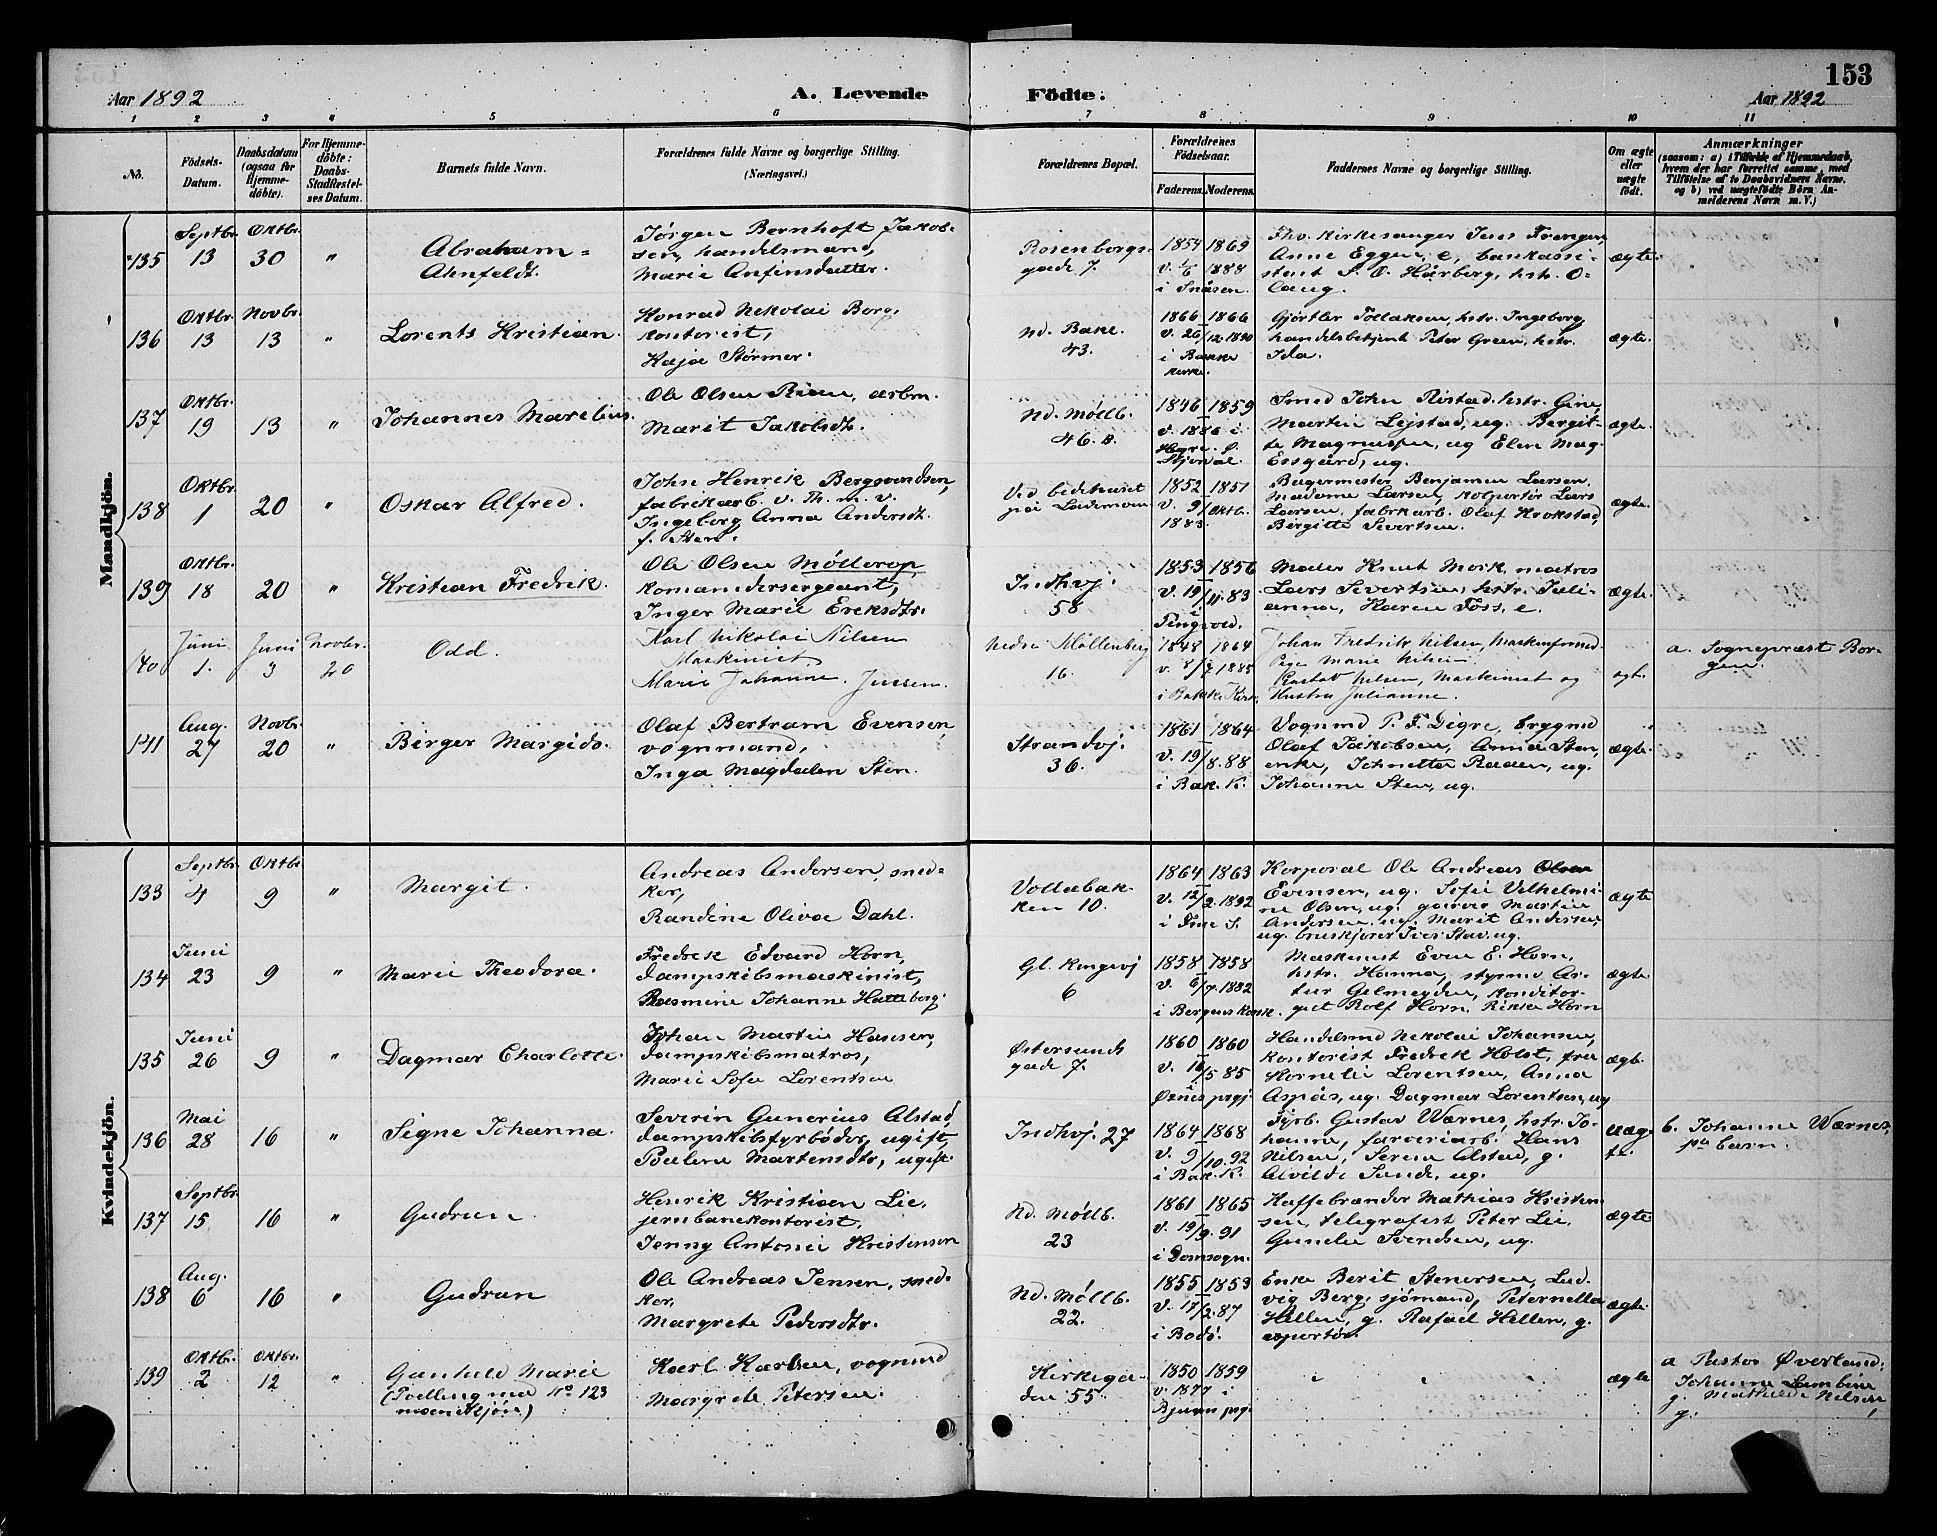 153
Aar 1892
A. Levende Födte.
Aar 1892
1 2 3 4 5 6 7 8 9 10 11
No.
Födsels-Datum.
Daabsdatum (ogsaa for Hjemme-döbte).
For Hjemme-döbte: Daabs-Stadfæstelses Datum.
Barnets fulde Navn.
Forældrenes fulde Navne og borgerlige Stilling.
(Næringsvei.)
Forældrenes Bopæl.
Forældrenes Födselsaar.
Faderens. Moderens.
Faddernes Navne og borgerlige Stilling.
Om ægte eller uægte födt.
Anmærkninger
(saasom: a) i Tilfælde af Hjemmedaab, hvem der har forrettet samme, med Tilföielse af to Daabsvidners Navne, og b) ved uægtefödte Börn Anmelderens Navn m. V.)
Mandkjön.
135 Septbr. 13 Oktbr. 30 " Abraham = Ahnfeldt.
Jørgen Bernhoft Jakob-
sen, handelsmand,
Marie Anfinsdatter.
Rosenborgs-
gade 7.
1854 1869
v. 1/6 1888
i Snåsen.
Fhv. kirkesanger Jens Frengen,
Anne Eggen, e, bankassi-
stent S. O. Hårberg, hstr. O-
laug.
ægte.
136 Oktbr. 13 Novbr. 13 " Lorents Kristian.
Konrad Nikolai Borg,
kontorist,
Kaja Størmer.
Nd. Bakl.
43.
1866 1866
v. 26/12 1890
i Bakke
kirke.
Gjørtler Tollaksen, hstr. Ingeborg,
handelsbetjent Peter Green, hstr.
Ida.
ægte.
137 Oktbr. 19 13 " Johannes Marelius.
Ole Olsen Rian, arbm.
Marit Jakobsdt.
Nd. Møllb.
46. B.
1846 1859
v. 1886 i
Hegre. Ø.
Stjordal.
Smed John Ristad, hstr. Gine,
Martin Lejstad, ug. Bergit-
te Magnussen, ug Elen Mag.
Essgård, ug.
ægte.
138 Oktbr. 1 20 " Oskar Alfred.
John Henrik Bergsvendsen,
fabrikarb. v. Th. m. v.
Ingeborg Anna Andersdt.
f. Sten.
Ved bedehuset
på Lademoen
1852 1851
v. 9/Oktbr.
1883.
Bagermester Benjamin Larsen,
Madame Larsen, kolportør Lars
Larsen, fabrkarb. Olaf Krokstad,
Birgitte Sivertsen.
ægte.
139 Oktbr. 18 20 " Kristian Fredrik.
Ole Olsen Møllerop,
komandersergeant,
Inger Marie Eriksdtr.
Indhvj.
58
1853 1856
v. 19/11. 83
i
Tingvold.
Maler Knut Mork, matros
Lars Sivertsen, hstr. Juli-
anna, Karen Foss, e.
ægte.
140 Juni 1. Juni 3 Novbr. 20 Odd.
Karl Nikolai Nilsen
Maskinist
Marie Johanne Jensen.
Nedre Møllenberg
16.
1848 1864
v. 8/7 1885
i Bakke Kirke
Johan Fredrik Nilsen, Maskinformd.
Pige Marie Nilsen.
Gustav Nilsen, Maskinist og
Hustru Julianne.
ægt.
a. Sognepræst Bor-
gen.
141 Aug. 27 Novbr. 20 " Birger Margido.
Olaf Bertram Evensen,
vognmand,
Inga Magdalen Sten.
Strandvj.
36.
1861 1864
v. 19/8. 88
i Bak. K.
Vognmd P. F. Digre, brygmd
Olaf Jakobsen, Anna Sten,
enke, Johnetta Raaen, ug.
Johanne Sten, ug.
ægte.
Kvindekjön.
133 Septbr. 4 Oktbr. 9 " Margit.
Andreas Andersen, sned-
ker,
Randine Olivae Dahl.
Vollabak-
ken 10.
1864 1863
v. 12/2. 1892
i Frue S.
Korporal Ole Andreas Olsen
Evensen, ug. Sofie Vilhelmi-
ne Olsen, ug. garver Martin
Andersen, ug. Marit Andersen,
ug. bruskjører Iver Stav, ug.
ægte
134 Juni 23 9 " Marie Theodora.
Fredrik Edvard Horn,
dampskibsmaskinist,
Rasmine Johanne Hatteberg.
Gl. Kongevj
6
1858 1858
v. 6/7. 1882
i Bergens korsk.
Maskinist Even E. Horn,
hstr. Hanna, styrmd Ar-
tur Gilmeyden, konditor-
Rolf Horn. Rikka Horn
ægte.
135 Juni 26 9 " Dagmar Charlotte.
Johan Martin Hansen,
dampskibsmatros,
Marie Sofie Lorentsen
Østersunds
gade 7.
1860 1860
v. 16/5 85
i
Ørnes prgj.
Handelsmd Nikolai Johansen,
kontorist Fredrik Holst, fru
Kornelie Lorentsen, Anna
Aspås, ug. Dagmar Lorentsen, ug
ægt.
136 Mai 28 16 " Signe Johanna.
Severin Gunerius Alstad,
dampskibsfyrbøder, ugift,
Pauline Martensdtr, ugift.
Indhvj. 27
1864 1868
v. 9/10. 92
i Bak. K.
Fyrb. Gustav Wærnes, hstr. Jo-
hanne, farveriarb. Hans
Nilsen, Serina Alstad, g.
Alvilde Sunde, ug.
uæg-
te.
b. Johanne Wærnes,
137 Septbr. 15 16 " Gudrun.
Henrik Kristian Lie,
jernbanekontorist,
Jenny Antonie Kristensen
Nd. Møllb.
23
1861 1865
v. 19/9. 91
i Domsogn.
Kaffebrænder Mathias Kristen-
sen, telegrafist Peter Lie,
Gunelie Svendsen, ug.
ægte
138 Aug. 6 16 " Gudrun
Ole Andreas Jensen, sned-
ker,
Margrete Pedersdtr.
Nd. Møllb.
22.
1855 1853
v. 17/2. 87
i Bodö.
Enke Berit Stenersen, Lud-
vig Berg, sjømand, Peternella
Hellen, g. Rafael Hellen, g.
exportør.
ægte.
139 Oktbr. 2 Oktbr. 12 " Gunhild Marie
(Tvilling med No 123
mandkjøn)
Karl Karlsen, vognmd
Margrete Petersen.
Kirkega-
den 55.
1850 1859
v. 1877 i
Bjugn prgj.
" " "
ægte
a Pastor Øverland;
Johanne
g. Mathilde Nilsen,
g.